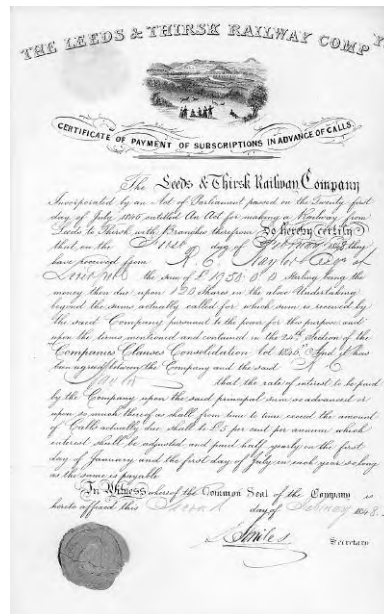 THE LEEDS & THIRSK RAILWAY COMP Y
CERTIFICATE OF PAYMENT OF SUBSCRIPTIONS IN ADVANCE OF CALLS
The Leeds & Thirsk Railway Company
Incorporated by an Act of Parliament passed on the Twenty first
day of July 1845 entitled An Act for making a Railway from
Leeds to Thirsk with Branches therefrom Do hereby certify
that on the First day of February 1848 they
have received from R. C. Naylor Esqr of
Liverpool the sum of £ 1950: 0: 0 Sterling being the
money then due upon 120 Shares in the above Undertaking
beyond the sums actually called for which sum is received by
the said Company pursuant to the power for this purpose and
upon the terms mentioned and contained in the 24th Section of the
Companies Clauses Consolidation Act 1845 And it has
been agreed between the Company and the said R C
Naylor that the rate of interest to be paid
by the Company upon the said principal sum so advanced or
upon so much thereof as shall from time to time exceed the amount
of Calls actually due shall be £5 per cent per annum which
interest shall be adjusted and paid half yearly on the first
day of January and the first day of July in each year so long
as the same is payable
In Witness whereof the Common Seal of the Company is
hereto affixed this Second day of February 1848.
S Smiles
Secretary